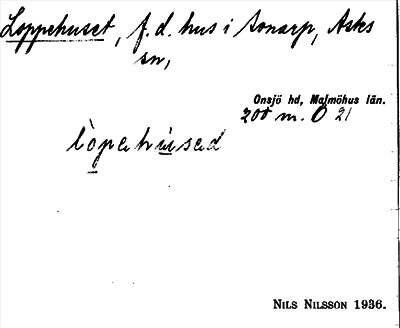 Loppehuset, f.d. hus i Aonarp, Asks
sn,
Onsjö hd, Malmöhus län.
200 m. O 21
lòpehúsed
NILS NILSSON 1936.